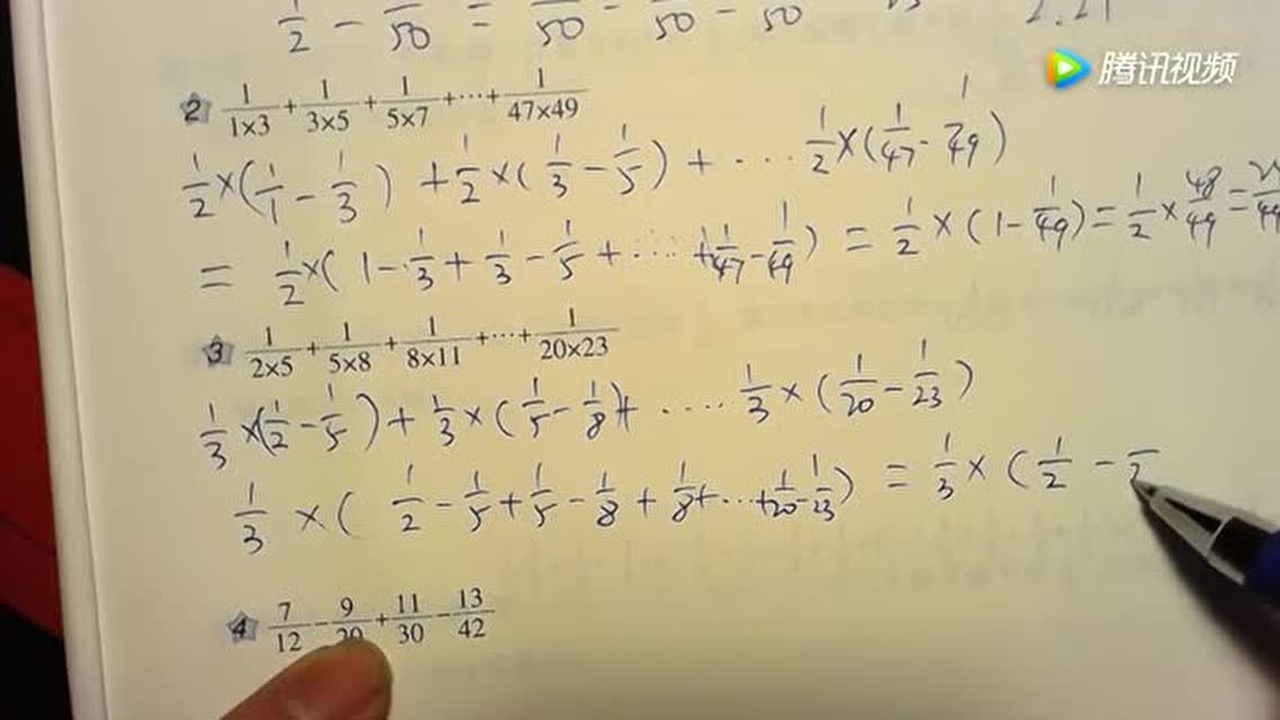 1/2 - /50 = /50 - /50 - 50
腾讯视频
2 1/(1×3) + 1/(3×5) + 1/(5×7) + ··· + 1/(47×49)
1/2 ×(1/1 - 1/3) + 1/2 ×(1/3 - 1/5) + ··· 1/2 ×(1/47 - 1/49)
= 1/2 ×(1 - 1/3 + 1/3 - 1/5 + ··· + 1/47 - 1/49) = 1/2 ×(1 - 1/49) = 1/2 × 48/49 =
3 1/(2×5) + 1/(5×8) + 1/(8×11) + ··· + 1/(20×23)
1/3 ×(1/2 - 1/5) + 1/3 ×(1/5 - 1/8) + ···· 1/3 ×(1/20 - 1/23)
1/3 ×(1/2 - 1/5 + 1/5 - 1/8 + 1/8 + ··· + 1/20 - 1/23) = 1/3 ×(1/2 -
4 7/12 - 9/20 + 11/30 - 13/42